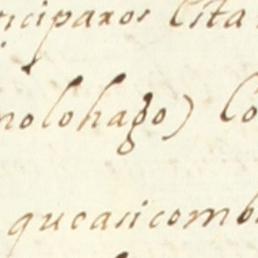 ticiparos Cita
nolohago) Co
queasicomb